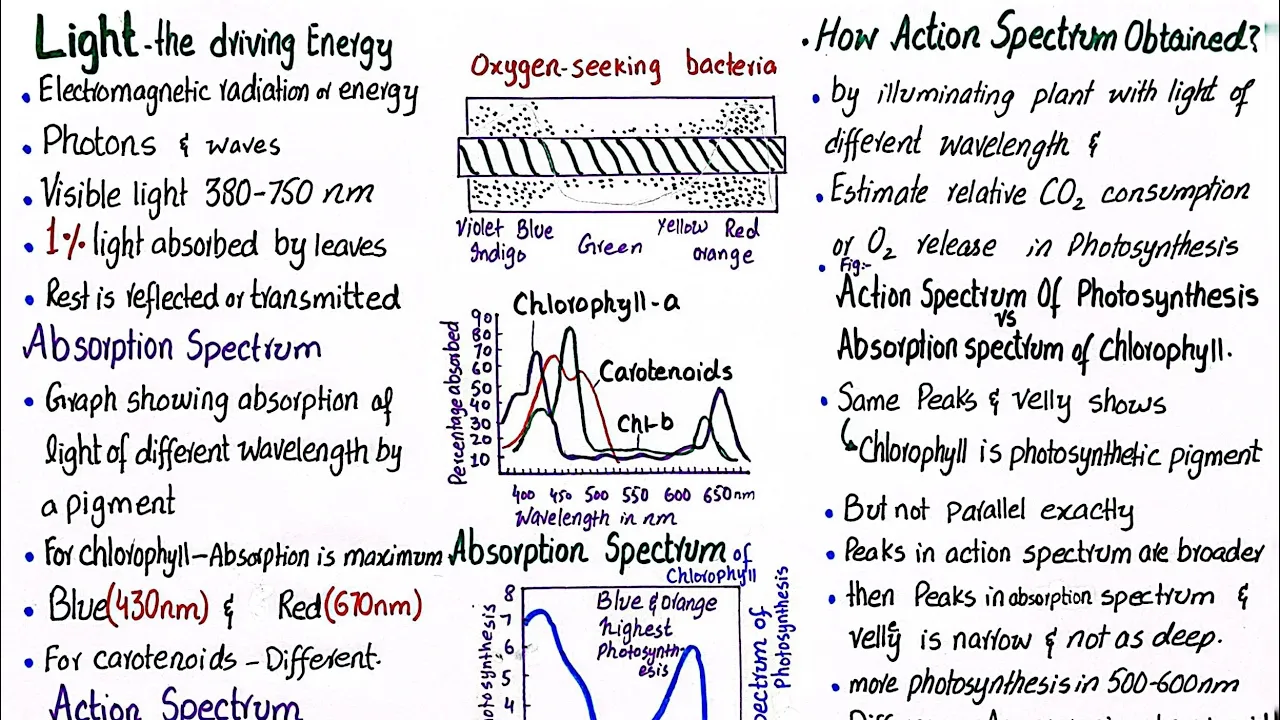 Light-the driving Energy
• Electromagnetic radiation or energy
• Photons & waves
• Visible light 380-750 nm
• 1% light absorbed by leaves
• Rest is reflected or transmitted
Absorption Spectrum
• Graph showing absorption of
light of different wavelength by
a pigment
• For chlorophyll-Absorption is maximum
• Blue(430nm) & Red(670nm)
• For carotenoids - Different.
Action Spectrum
Oxygen-seeking bacteria
Violet Blue Yellow Red
Indigo Green orange
Chlorophyll-a
Carotenoids
Chl-b
Percentage absorbed
90
80
70
60
50
40
30
20
10
400 450 500 550 600 650nm
Wavelength in nm
Absorption Spectrum of
Chlorophyll
8
7
6
5
4
Blue & orange
highest
Photosynth-
esis
Photosynthesis
• How Action Spectrum Obtained?
• by illuminating plant with light of
different wavelength &
• Estimate relative CO2 consumption
or O2 release in Photosynthesis
• Fig:-
Action Spectrum Of Photosynthesis
vs
Absorption spectrum of chlorophyll.
• Same Peaks & velly shows
Chlorophyll is photosynthetic pigment
• But not parallel exactly
• Peaks in action spectrum are broader
• then Peaks in absorption spectrum &
velly is narrow & not as deep.
• more photosynthesis in 500-600nm